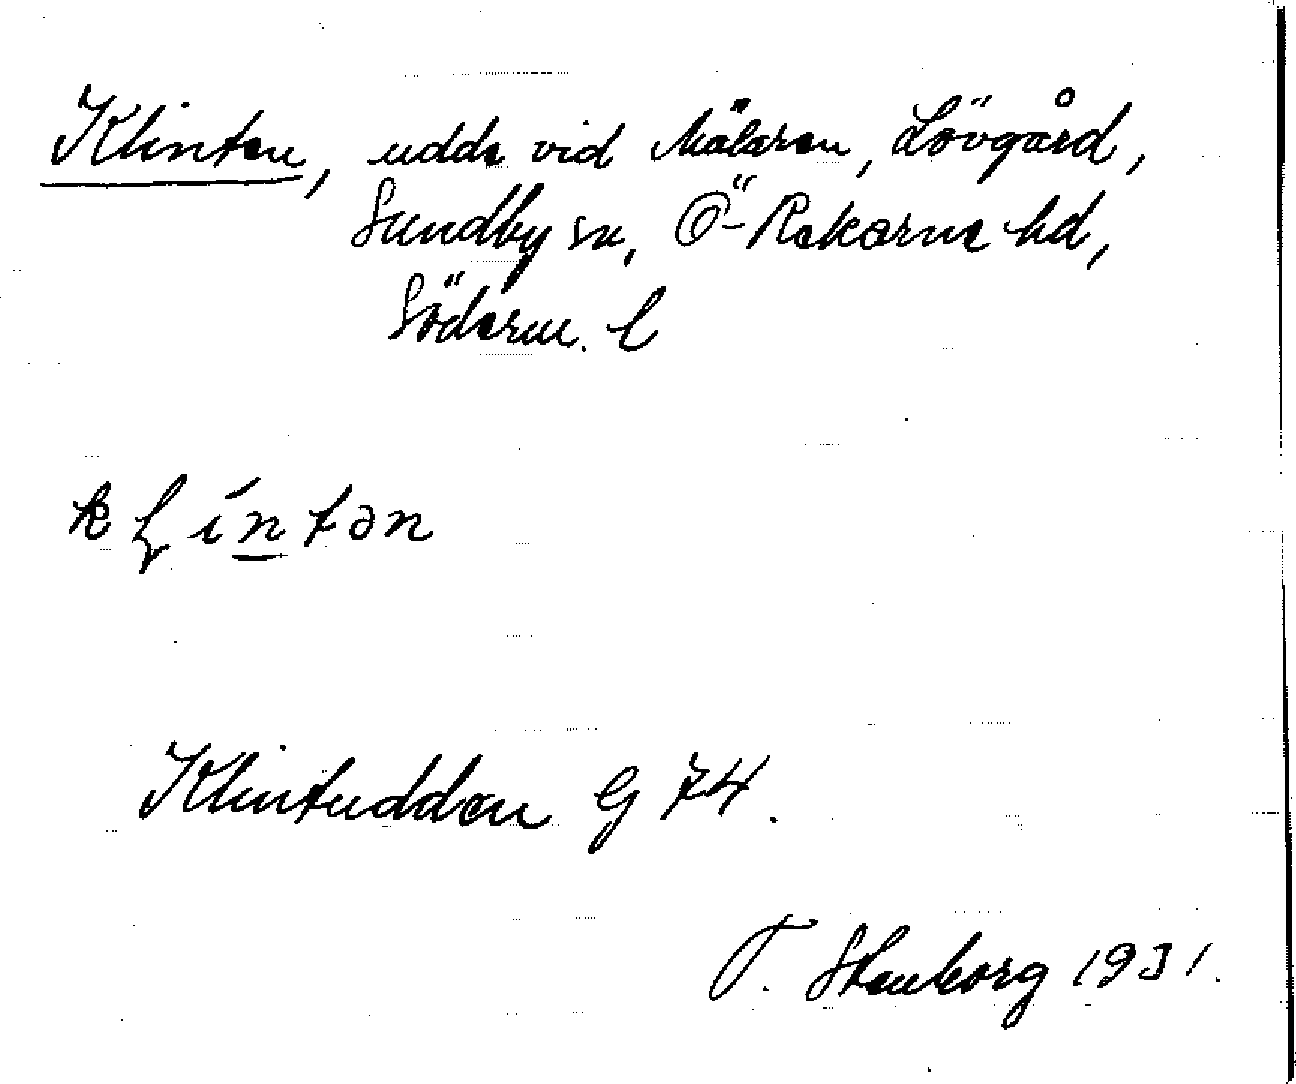 Klinten, udde vid Mälaren, Lövgård,
Sundby sn, Ö-Rekarne hd,
Söderm. l
kļíntən
Klintudden G 74.
T. Stenborg 1931.